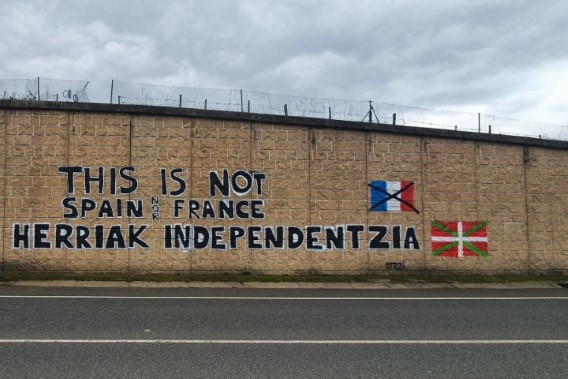 THIS IS NOT
SPAIN NOR FRANCE
HERRIAK INDEPENDENTZIA